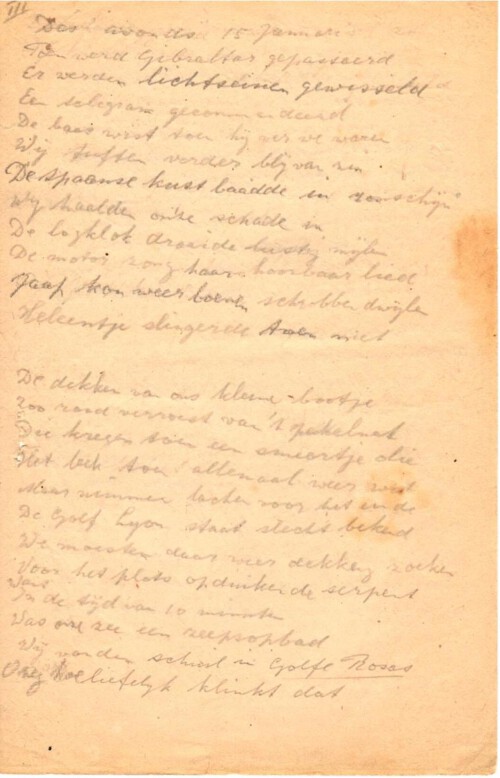 III
Des avonds 15 Januari
Toen werd Gibraltar gepasseerd
Er werden lichtseinen gewisseld
Een telegram gecommandeerd
De baas wist toen hij ver we waren
Wij tuften verder blij van zin
De Spaanse kust baadde in zonschijn
Wij haalden onze schade in
De logklok draaide lustig mijlen
De motor zong haar hoorbaar lied
Jaap kon weer boenen schrobben dwijlen
Heleentje slingerde toen niet
De dekken van ons kleine bootje
zoo rood verroest van 't pekelnat
Die kregen toen een smeertje olie
Het leek toen allemaal weer wat
Maar nimmer lachen voor het einde
De Golf Lyon staat slecht bekend
We moesten daar weer dekking zoeken
Voor het plots opduikende serpent
In de tijd van 10 minuten
Was onze zee een zeepsopbad
Wij vonden schuil in Golfe Rosas
hoe liefelijk klinkt dat